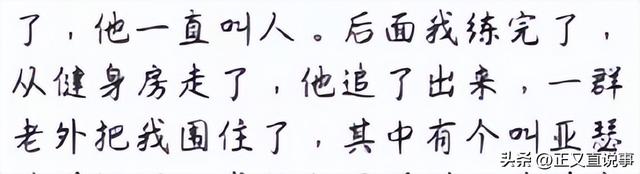 了，他一直叫人。后面我练完了，
从健身房走了，他追了出来，一群
老外把我围住了，其中有个叫亚瑟
头条 @正又直说事